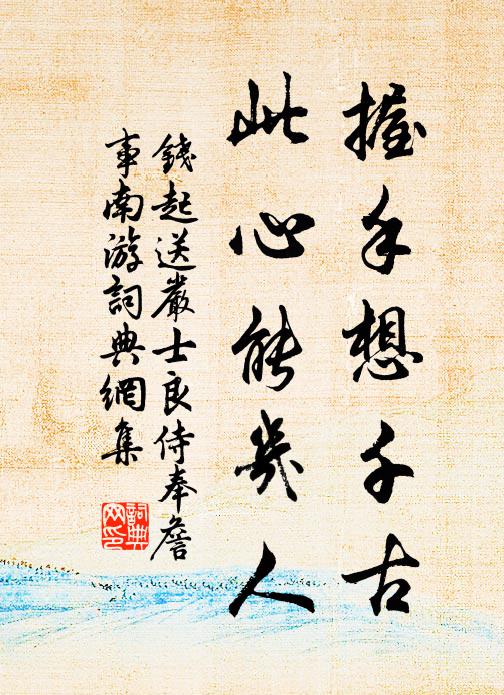 握手想千古
此心能幾人
錢起送嚴士良侍奉詹
事南游詞典網集
詞典
网印